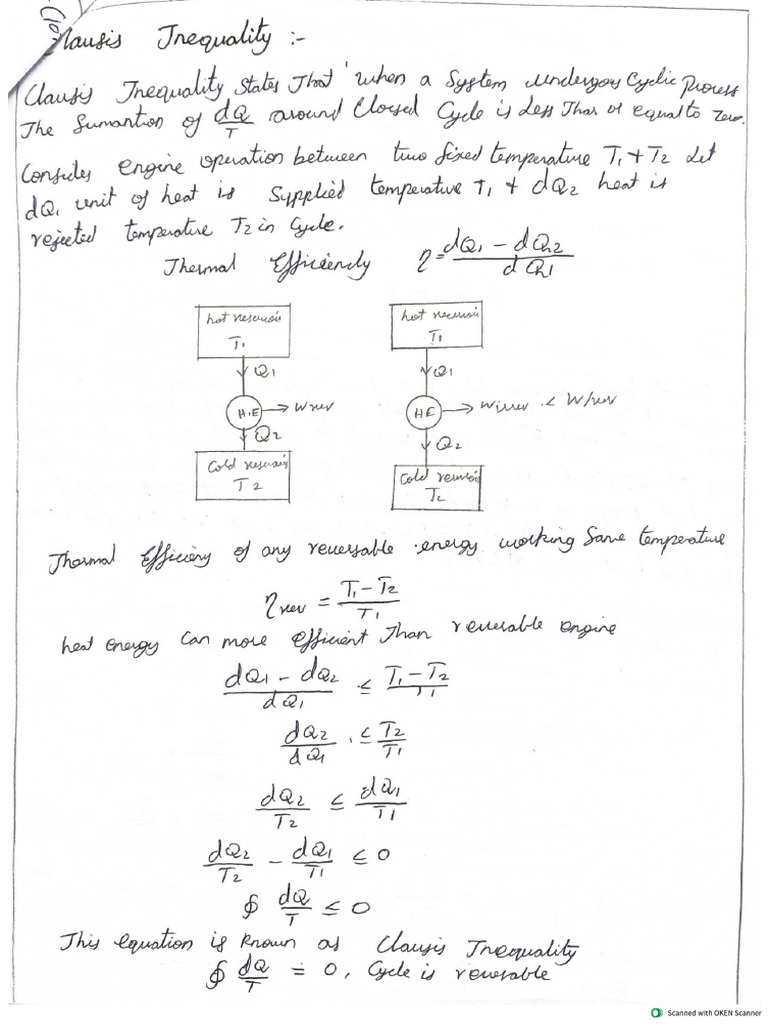 Clausis Inequality :-
Clausis Inequality States That when a System undergoes Cyclic Process
The Sumantion of dQ/T around Closed Cycle is Less Than or equal to Zero.
Consider engine operation between two fixed temperature T1 & T2 Let
dQ1 unit of heat is Supplied temperature T1 & dQ2 heat is
rejected temperature T2 in Cycle.
Thermal Efficiency η = dQ1 - dQ2 / dQ1
hot reservoir
T1
Q1
H.E → Wrev
Q2
Cold reservoir
T2
hot reservoir
T1
Q1
HE → Wirrev < Wrev
Q2
Cold reservoir
T2
Thermal Efficiency of any reversable energy working Same temperature
ηrev = T1 - T2 / T1
heat energy Can more efficient Than reversable engine
dQ1 - dQ2 / dQ1 ≤ T1 - T2 / T1
dQ2 / dQ1 ≤ T2 / T1
dQ2 / T2 ≤ dQ1 / T1
dQ2 / T2 - dQ1 / T1 ≤ 0
∮ dQ / T ≤ 0
This equation is Known as Clausis Inequality
∮ dQ / T = 0, Cycle is reversable
Scanned with OKEN Scanner